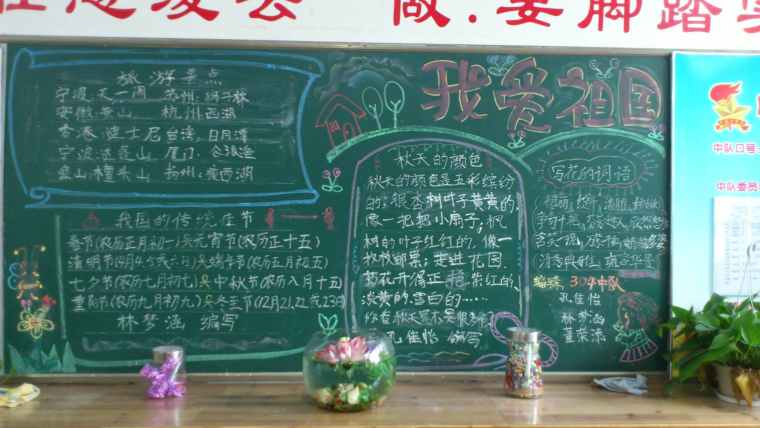 做.要脚踏实
我爱祖国
旅游景点
宁波天一阁 苏州:狮子林
安徽黄山 杭州西湖
香港迪士尼 台湾:日月潭
宁波达蓬山 厦门:
象山檀头山 扬州:瘦西湖
我国的传统佳节
春节(农历正月初一) 元宵节(农历正十五)
清明节(4月4含或六日) 端午节(农历五月初五)
七夕节(农历七月初七) 中秋节(农历八月十五)
重阳节(农历九月初九) 冬至节(12月21,22或23日)
林梦涵 编写
秋天的颜色
秋天的颜色是五彩缤纷
的:银杏树叶子黄黄的,
像一把把小扇子;枫
树的叶子红红的,像一
枚枚邮票;走进花园,
菊花开得正艳,紫红的、
淡黄的、雪白的……
孔佳怡 编写
写花的词语
编辑:304中队
孔佳怡
林梦涵
中队口号:
中队委员